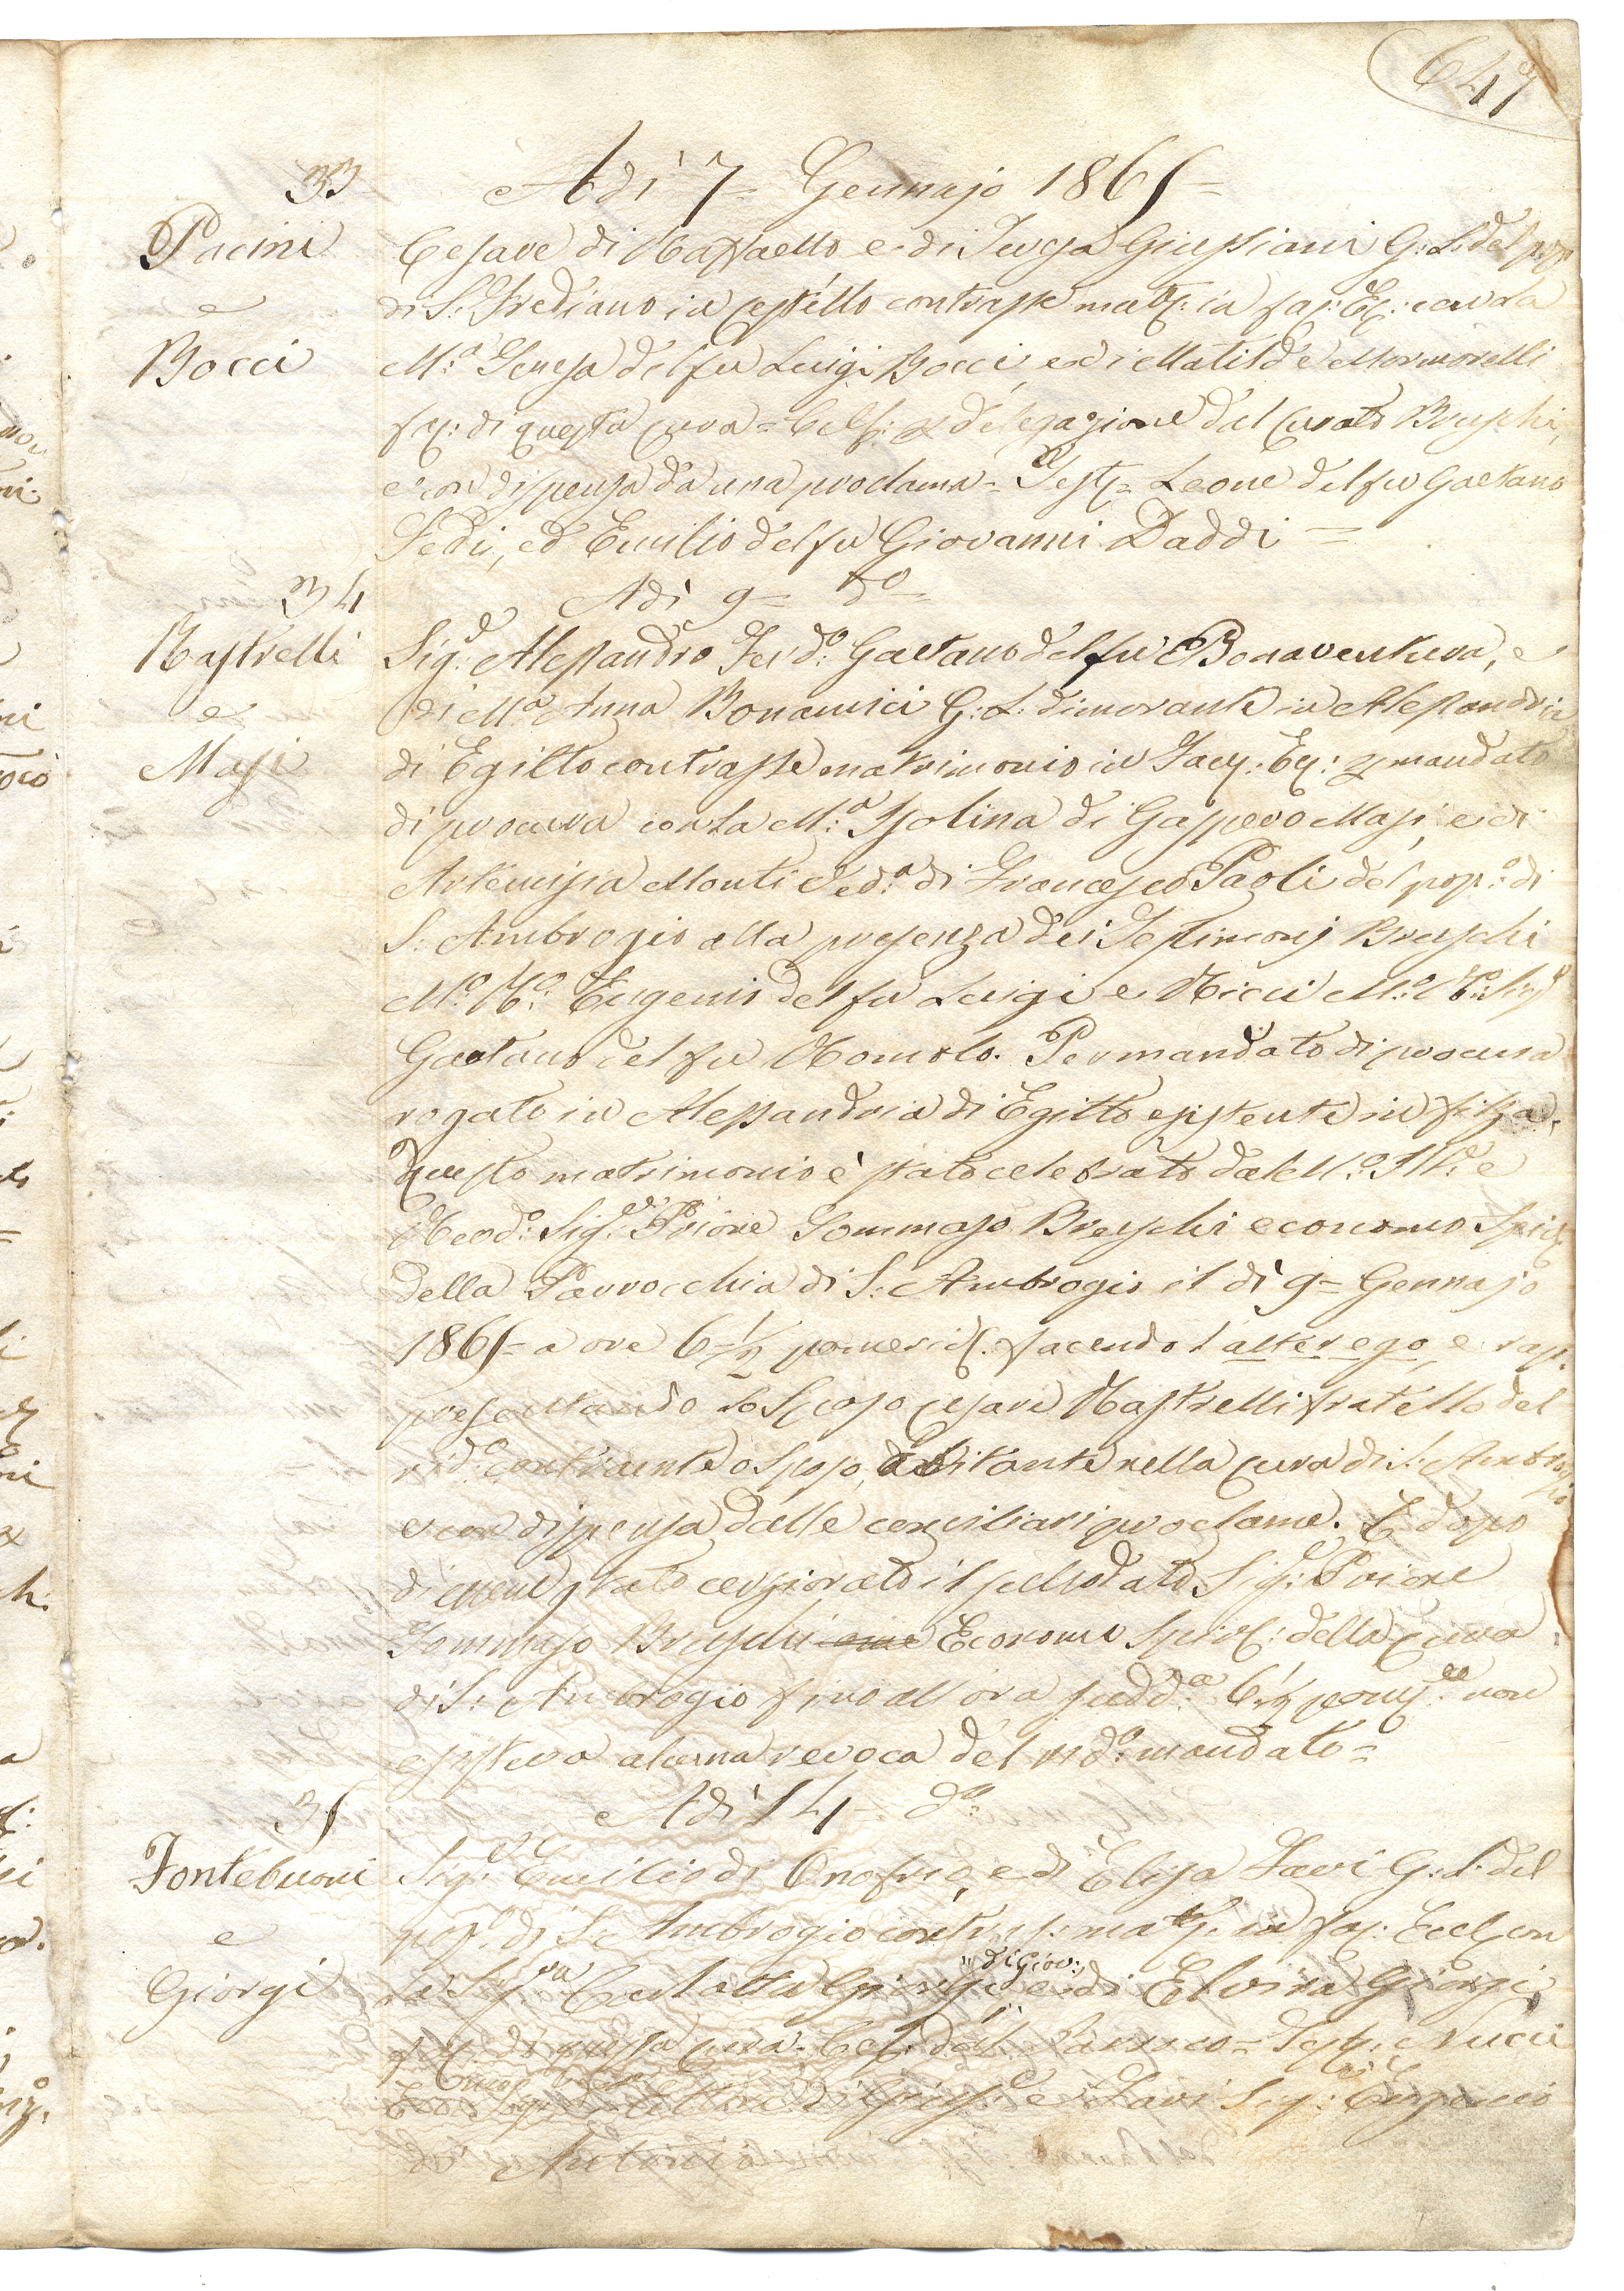 647
33
Adì 7= Gennajo 1865=
Pacini
e
Bocci
Cesare di Raffaello e di Teresa Giussiani G: L: del pop:
di S: Frediano in Cestello contrasse mat: in fac: Ec: con la
M:a Teresa del fu Luigi Bocci, e di Matilde Mormorelli
di questa cura = Cel: delegazione del Curato Bruschi,
e con dispensa da una proclama = Test = Leone del fu Gaetano
Sedi, ed Emilio del fu Giovanni Daddi =
34
Adì 9= do
Rastrelli
e
Masi
Sig:e Alessandro Ferdo: Gaetano del fu Bonaventura, e
di Ma Anna Bonamici G: L: dimorante in Alessandria
di Egitto contrasse matrimonio in Facc: Ec: mandato
di procura con la M:a Isolina di Gaspero Masi, e di
Artemisia Monti Ved:a di Francesco Paoli del pop:o di
S: Ambrogio alla presenza dei Testimonj Bruschi
Mo: Ro: Eugenio del fu Luigi e Ricci M:o
Gaetano del fu Romolo. Per mandato di procura
rogato in Alessandria di Egitto esistente in filza.
Questo matrimonio è stato celebrato dal M:o Ill:e e
Revdo: Sig:e Priore Tommaso Bruschi economo Spir:
della Parrocchia di S: Ambrogio il dì 9= Gennajo
1865= a ore 6 1/2 pomerid: facendo l'alter ego, e rap-
presentando lo Sposo Cesare Rastrelli fratello del
contraente o Sposo, abitante nella cura di S: Ambrogio
e con dispensa dalle conciliari proclame. E dopo
di essere stato cerziorato il sullodato Sig:e Priore
Tommaso Bruschi Economo Spir: della Cura
di S: Ambrogio fino all'ora sudd:a 6 1/2 pom: non
esisteva alcuna revoca del mandato=
35
Adì 14= do:
Fontebuoni
e
Giorgi
Sig:e Emilio di Onofrio, e di Elisa Lavi G: L: del
pop: di S: Ambrogio contr: mat: in fac: Eccl: con
di Giov:
la Sig:ra Carlotta Giorgi e di Elvira Giorgi,
di questa cura. Cel: dal Parroco= Test: Nucci
e Lavi Sig: Eugenio
di Antonio